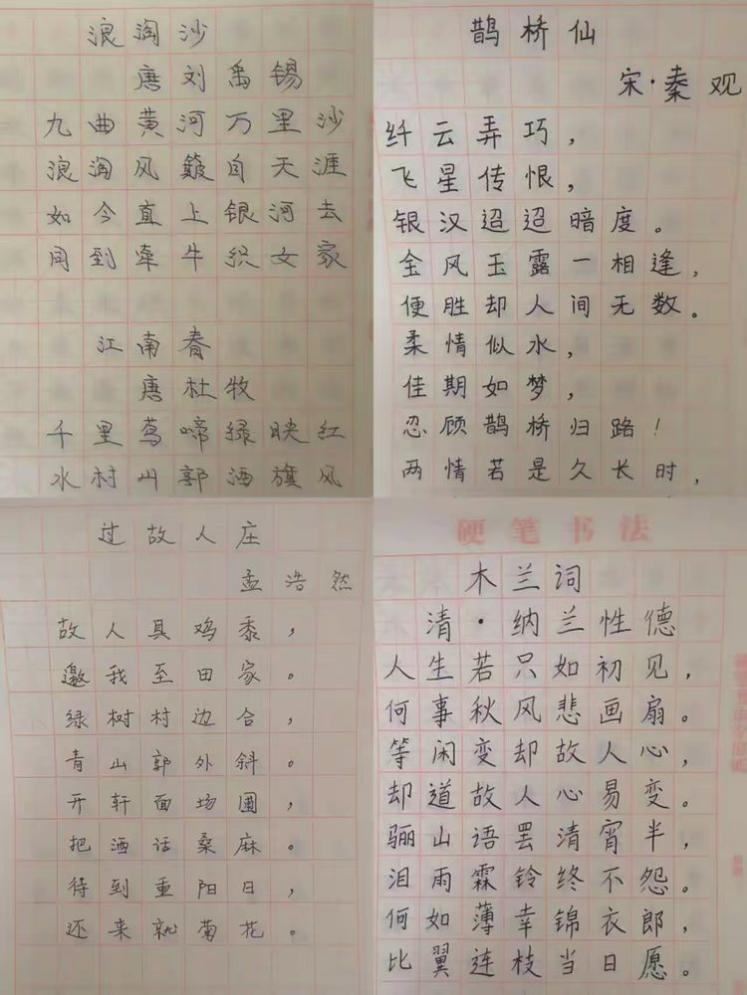 浪淘沙
唐刘禹锡
九曲黄河万里沙
浪淘风簸自天涯
如今直上银河去
同到牵牛织女家
江南春
唐杜牧
千里莺啼绿映红
水村山郭酒旗风
鹊桥仙
宋·秦观
纤云弄巧，
飞星传恨，
银汉迢迢暗度。
金风玉露一相逢，
便胜却人间无数。
柔情似水，
佳期如梦，
忍顾鹊桥归路！
两情若是久长时，
过故人庄
孟浩然
故人具鸡黍，
邀我至田家。
绿树村边合，
青山郭外斜。
开轩面场圃，
把酒话桑麻。
待到重阳日，
还来就菊花。
硬笔书法
木兰词
清·纳兰性德
人生若只如初见，
何事秋风悲画扇。
等闲变却故人心，
却道故人心易变。
骊山语罢清宵半，
泪雨霖铃终不怨。
何如薄幸锦衣郎，
比翼连枝当日愿。